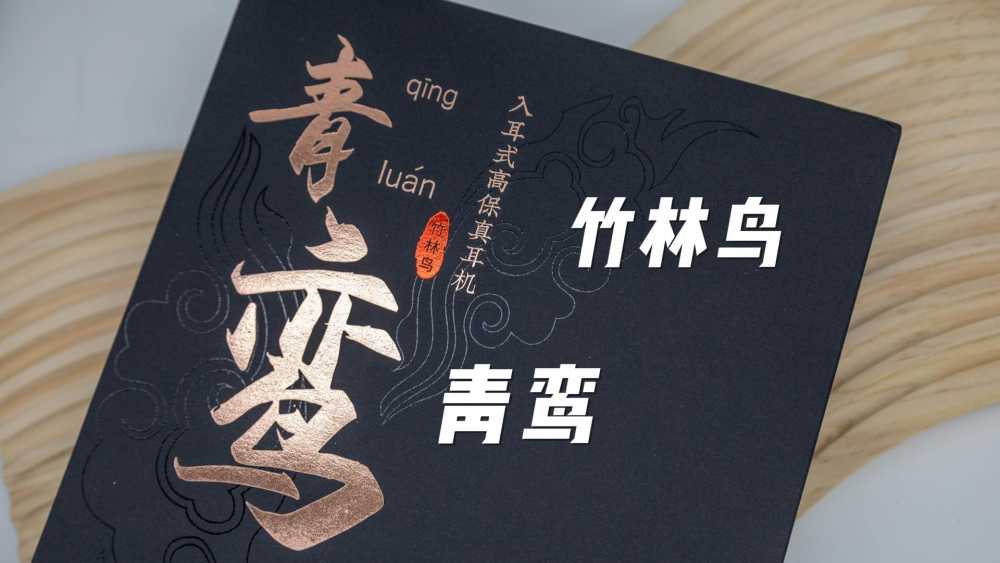 青鸾
qīng
luán
入耳式高保真耳机
竹林鸟
竹林鸟
青鸾